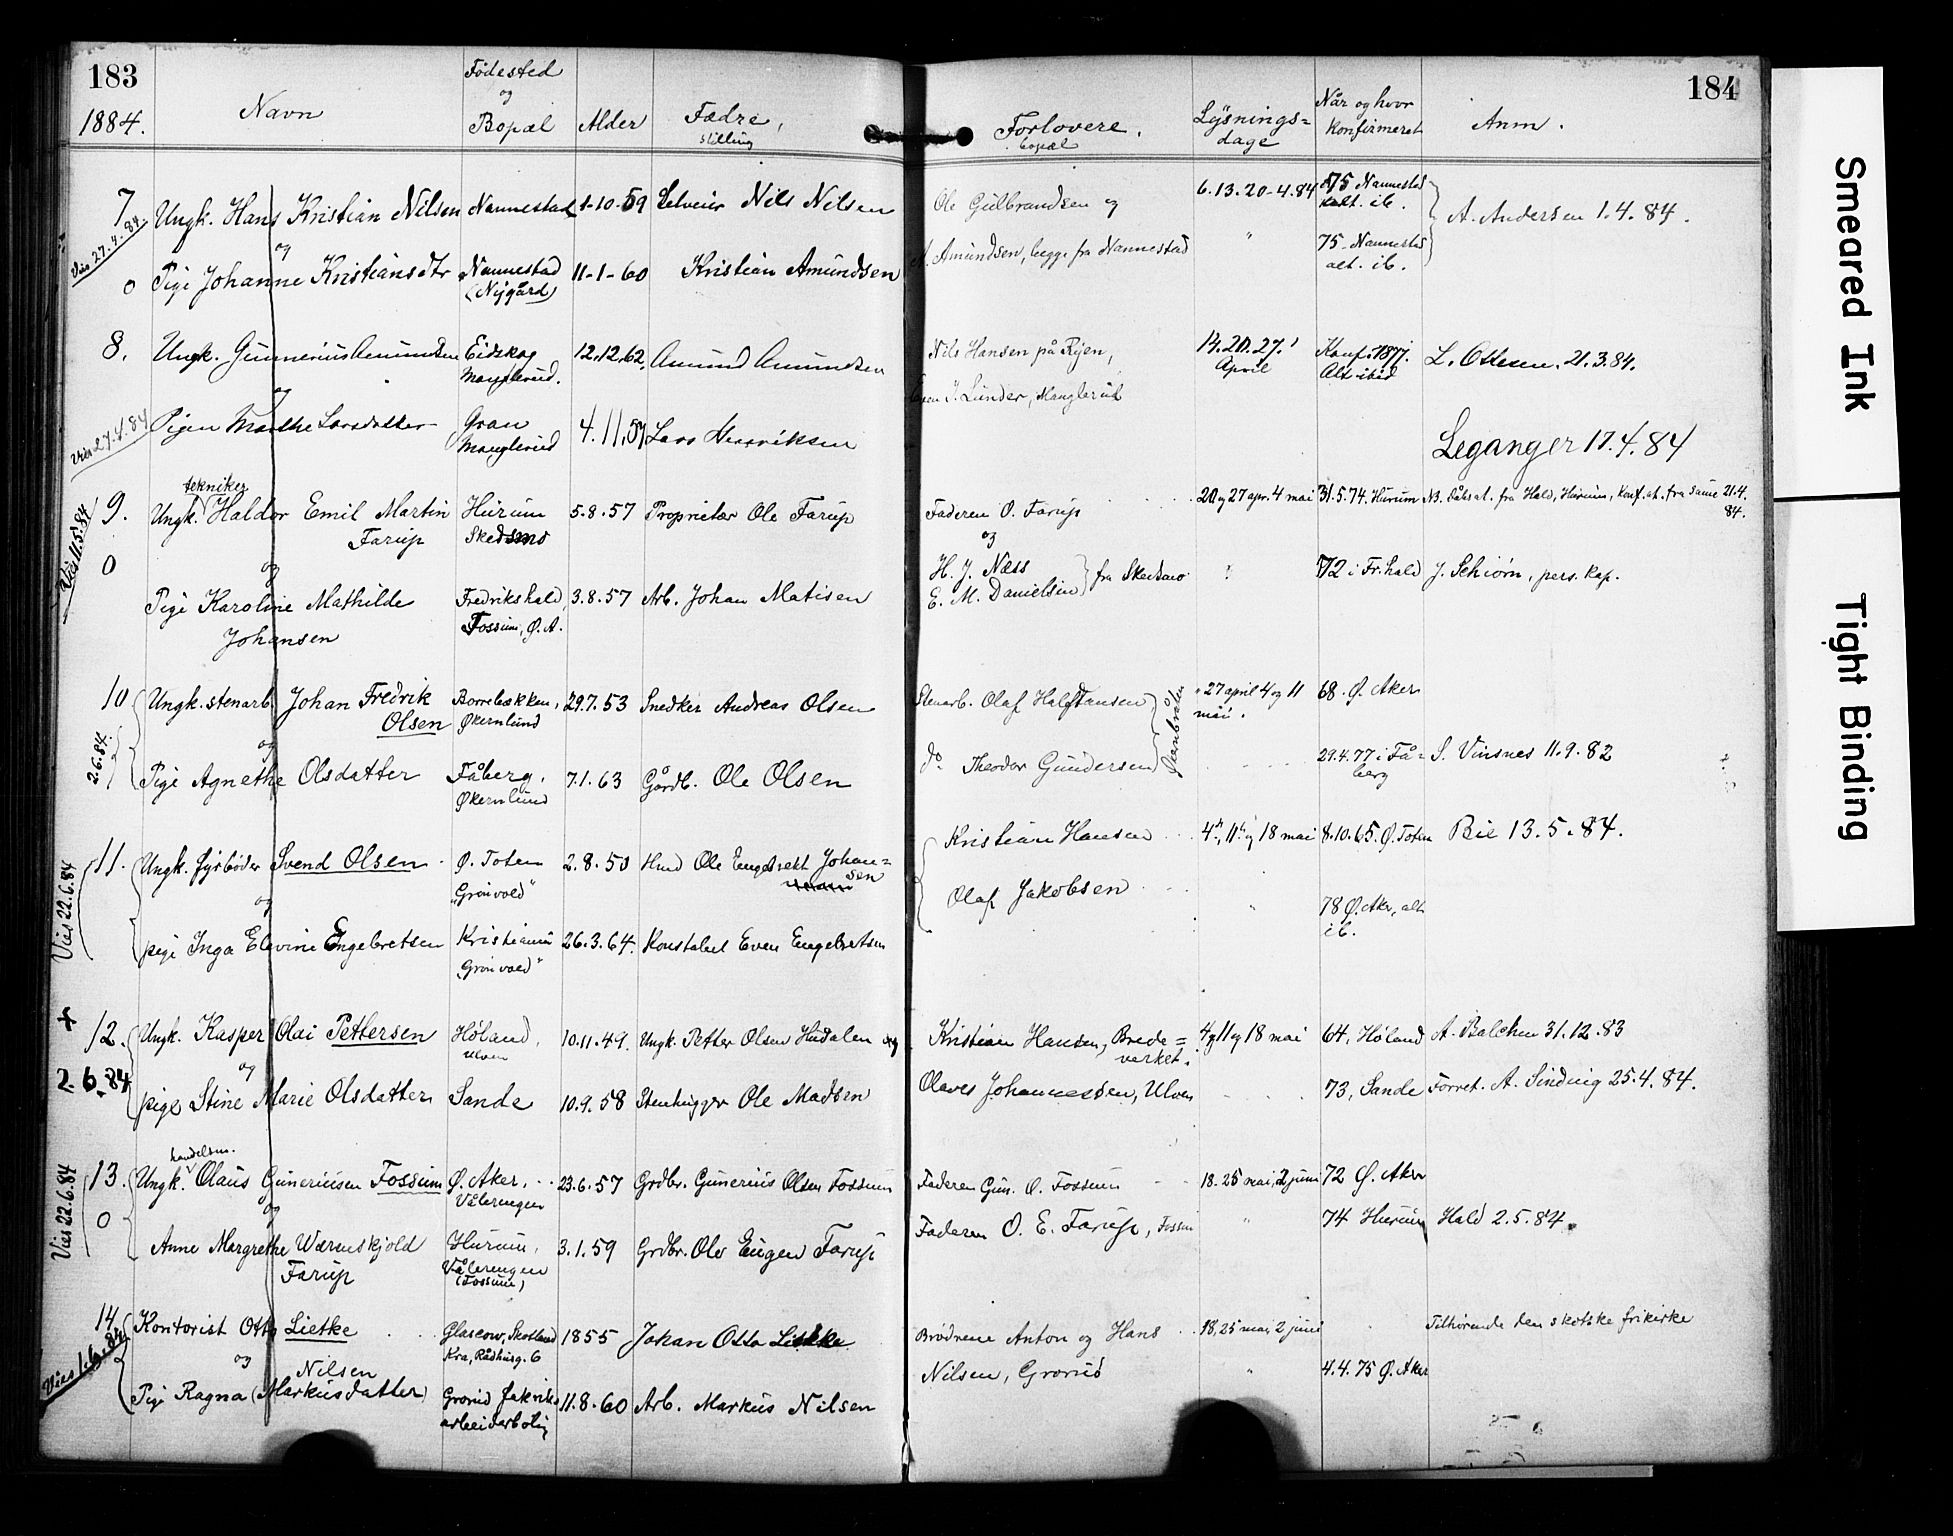 183
1884.
Navn
Fødested
og
Bopæl
Alder
Fædre,
stilling
184
Forlovere.
bopæl
Lysnings=
dage
Når og hvor
konfirmeret
Anm.
7
Vies 27.4.84.
0
Ungk. Hans Kristian Nilsen Nannestad 1-10-59 Selveier Nils Nilsen
og
Pige Johanne Kristiansdtr Nannestad 11-1-60 Kristian Amundsen
(Nygård)
Ole Gulbrandsen og 6.13.20-4.84 75 Nannestad
alt. ib.
A. Andersen 1.4.84.
A. Amundsen, begge fra Nannestad " 75-Nannestad
alt. ib.
8.
Vies 27.4.84
Ungk. Gunnerius Amundsen Eidskog 12.12.62. Amund Amundsen
Manglerud.
og
Pigen Marthe Larsdatter Gran 4.11.57 Lars Henriksen
Manglerud
Nils Hansen på Ryen, 14.20.27. Konf. 1877. L. Ottesen. 21.3.84.
April Alt ibid
J. Lunder, Manglerud
Leganger 17.4.84
9.
Vies 11.5.84
0
tekniker
Ungk. Haldor Emil Martin Hurum 5.8.57 Proprietær Ole Farup
Farup Skedsmo
og
Pige Karoline Mathilde Fredrikshald, 3.8.57 Arb. Johan Matisen
Johansen Fossum, Ø.A.
Faderen O. Farup 20 og 27 apr. 4 mai 31.5.74. Hurum NB. Dåbsat. fra Hald, Hurum, konf. at. fra samme 21.4.
84.
og
H. J. Næss
E. M. Danielsen fra Skedsmo " 72 i Fr.hald J. Schiørn, pers. kap.
10
2.6.84.
Ungk. stenarb. Johan Fredrik Borrebækken, 29.7.53 Snedker Andreas Olsen
Olsen Økernlund
og
Pige Agnethe Olsdatter Fåberg, 7.1.63 Gårdb. Ole Olsen
Økernlund
Stenarb. Olaf Halfstansen " 27 april 4 og 11 68. Ø. Aker
mai.
do Theodor Gundersen 29.4.77 i Få= S. Vinsnes 11.9.82
berg
11.
Vies 22.6.84
Ungk. fyrbøder Svend Olsen Ø. Toten 2.8.50 Hmd Ole Engebrekt Johan=
sen
"Grønvold"
og
pige Inga Elevine Engebretsen Kristiania 26.3.64. Konstabel Even Engebretsen
"Grønvold"
Kristian Hansen 4de, 11te og 18 mai 8.10.65. Ø. Toten Bie 13.5.84.
Olaf Jakobsen " 78 Ø. Aker, alt
ib.
+
12.
2.6.84
Ungk. Kasper Olai Pettersen Høland, 10.11.49. Ungk. Petter Olsen Hudalen og
Ulven
og
pige Stine Marie Olsdatter Sande 10.9.58 Stenhugger Ole Madsen
Kristian Hansen, Brede= 4 og 11 og 18 mai 64, Høland A. Balchen 31.12.83
verket.
Olaves Johannessen, Ulven 73, Sande Forret. A. Sinding 25.4.84.
13.
Vies 22.6.84
0
handelsm.
Ungk. Olaus Guneriusen Fossum Ø. Aker, 23.6.57 Grdbr. Gunerius Olsen Fossum
Vålerengen
og
Anne Margrethe Wærnskjold Hurum, 3.1.59 Grdbr. Ole Eugen Farup
Farup Vålerengen
(Fossum)
Faderen Gun. O. Fossum 18.25 mai, 2 juni 72 Ø. Aker
Faderen O. E. Farup, Fossum " 74 Hurum Hald 2.5.84.
14
Vies 1.6.84
Kontorist Otto Lietke Glascow, Skotland 1855 Johan Otto Lietke
Kra, Rådhusg. 6
og
Nilsen
Pige Ragna (Markusdatter) Grorud fabriks 11.8.60 Arb. Markus Nilsen
arbeiderbolig
Brødrene Anton og Hans 18,25 mai, 2 juni Tilhørende den skotske frikirke
Nilsen, Grorud " 4.4.75 Ø. Aker
Smeared Ink
Tight Binding